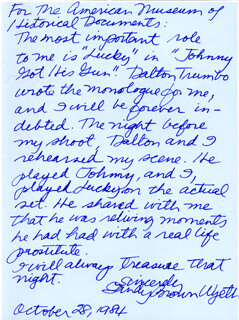 For The American Museum of
Historical Documents:
The most important role
to me is "Lucky" in "Johnny
Got His Gun". Dalton Trumbo
wrote the monologue for me,
and I will be forever in-
debted. The night before
my shoot, Dalton and I
rehearsed my scene. He
played Johnny, and I,
played Lucky on the actual
set. He shared with me
that he was reliving moments
he had had with a real life
prostitute.
I will always treasure that
night.
Sincerely
Sandy Brown Wyeth
October 28, 1984